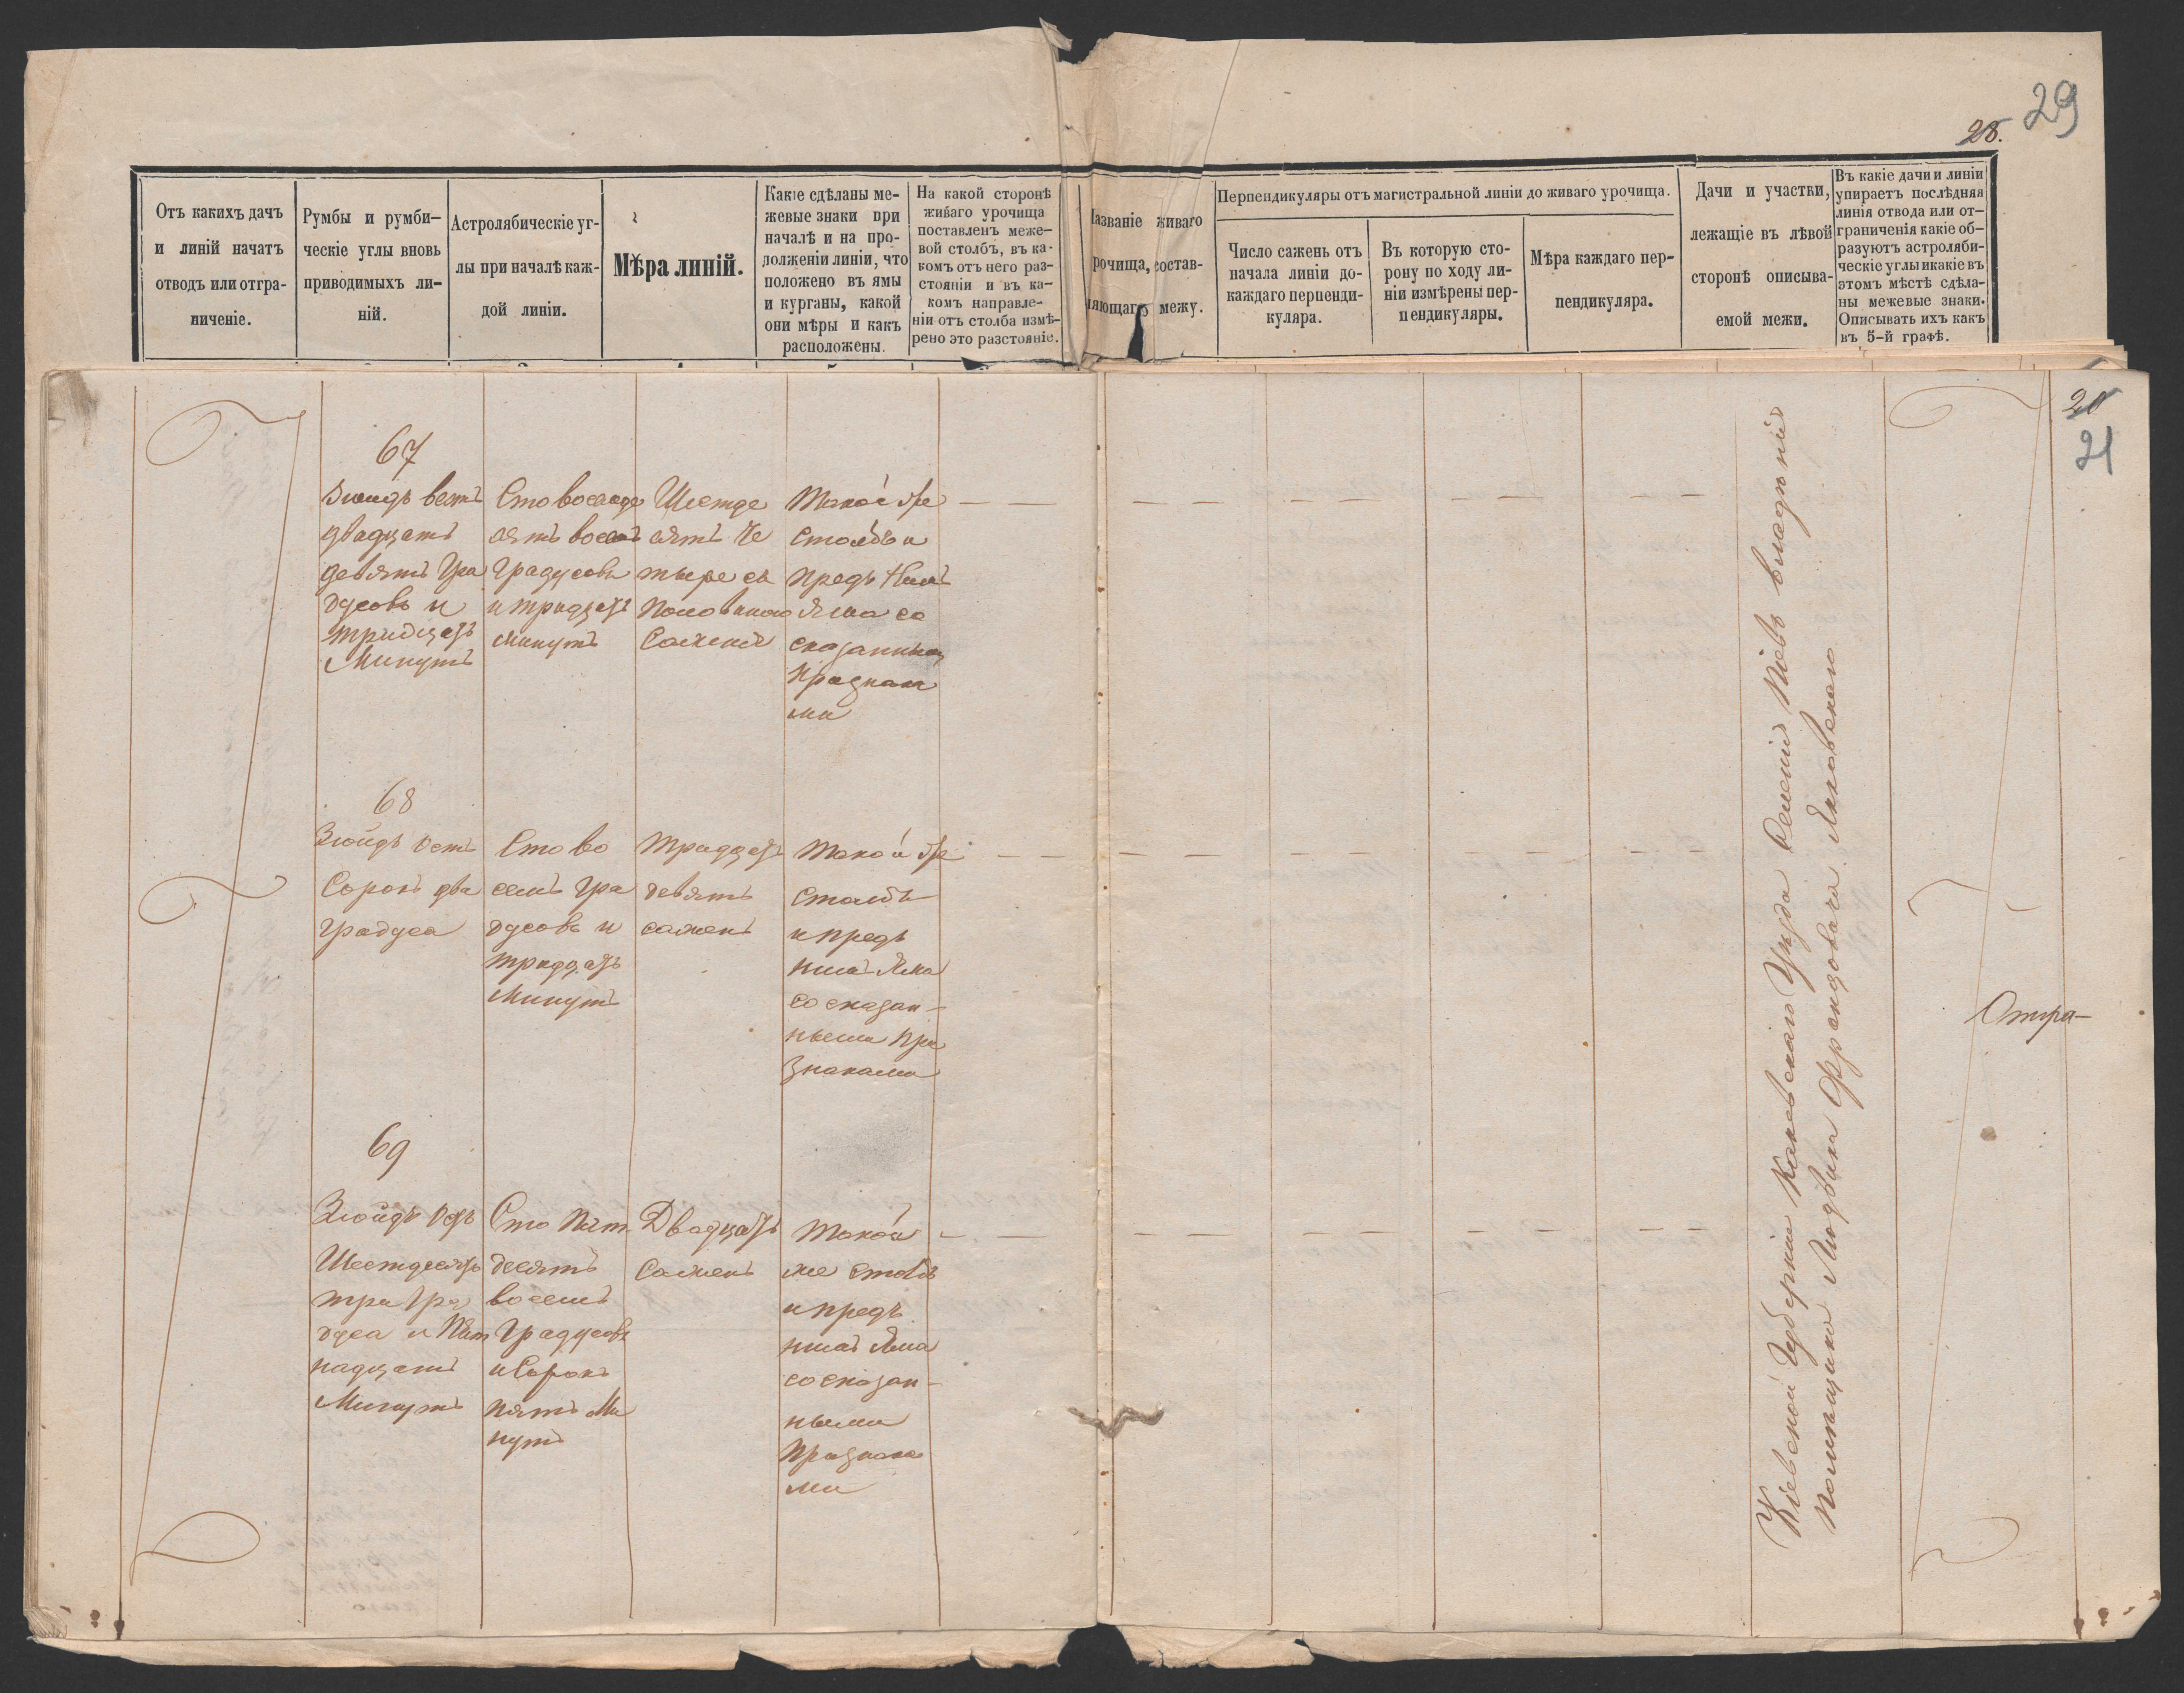 29
28.
Отъ какихъ дачъ
и линій начатъ
отводъ или отгра-
ниченіе.
Румбы и румби-
ческіе углы вновь
приводимыхъ ли-
ній.
Астролябическіе уг-
лы при началѣ каж-
дой линіи.
Мѣра линій.
Какіе сдѣланы ме-
жевые знаки при
началѣ и на про-
долженіи линіи, что
положено въ ямы
и курганы, какой
они мѣры и какъ
расположены.
На какой сторонѣ
живаго урочища
поставленъ меже-
вой столбъ, въ ка-
комъ отъ него раз-
стояніи и въ ка-
комъ направле-
ніи отъ столба измѣ-
рено это разстояніе.
Названіе живаго
урочища, состав-
ляющаго межу.
Перпендикуляры отъ магистральной линіи до живаго урочища.
Число сажень отъ
начала линіи до-
каждаго перпенди-
куляра.
Въ которую сто-
рону по ходу ли-
ніи измѣрены пер-
пендикуляры.
Мѣра каждаго пер-
пендикуляра.
Дачи и участки,
лежащіе въ лѣвой
сторонѣ описыва-
емой межи.
Въ какіе дачи и линіи
упираетъ послѣдняя
линія отвода или от-
граниченія какіе об-
разуютъ астроляби-
ческіе углы и какіе въ
этомъ мѣстѣ сдѣла-
ны межевые знаки.
Описывать ихъ какъ
въ 5-й графѣ.
20
21
67
Зюидъ вестъ
двадцать
девять Гра
дусовъ и
тридцать
Минутъ
Сто восемьде
сятъ восемь
Градусовъ
и тридцать
минутъ
Шестьде
сятъ че
тыре съ
половиною
Сажени
Такой же
столбъ и
предъ нимъ
Яма со
сказанными
признака
ми
68
Зюйдъ Остъ
Сорокъ два
Градуса
Сто во
семь Гра
дусовъ и
тридцать
Минутъ
Тридцать
девять
сажень
Такой же
столбъ
и предъ
нимъ Яма
со сказан-
ными При
знаками
69
Зюйдъ Остъ
Шестьдесятъ
три Гра
дуса и Пят
надцать
Минутъ
Сто Пять
десятъ
восемь
Градусовъ
и Сорокъ
пять Ми
нутъ
Двадцать
Сажень
Такой
же столбъ
и предъ
нимъ Яма
со сказан-
ными
Признака
ми
Кіевской Губерніи Каневскаго Уѣзда Селеніе Піевъ владѣнія
помѣщика Людвика Францовича Яковскаго
Отгра-